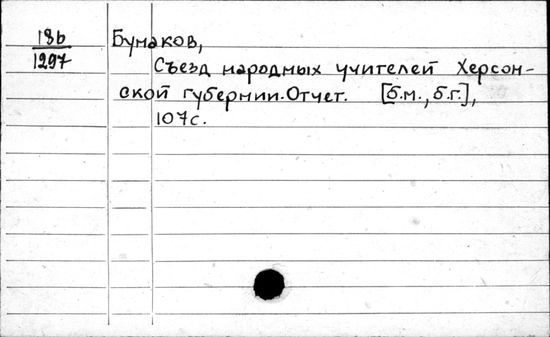 18б
1297
Бунаков,
Съезд народных учителей Херсон-
ской губернии. Отчет. [б.м., б.г.],
107с.